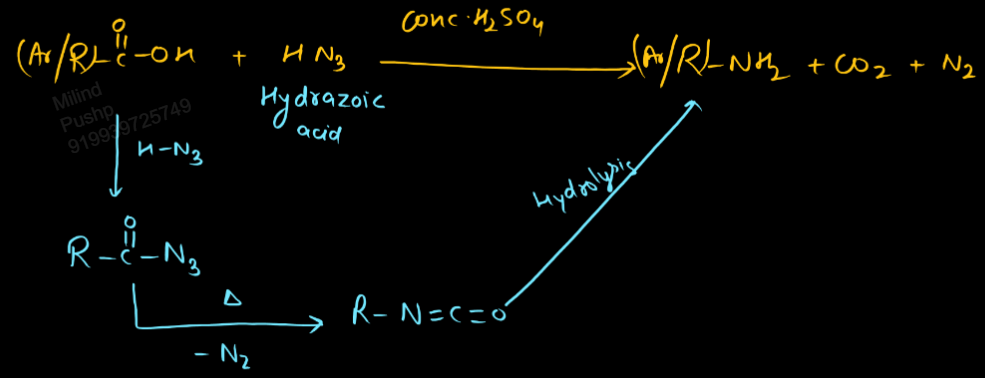 Conc. H2SO4
(Ar/R)-C(=O)-OH + HN3 → (Ar/R)-NH2 + CO2 + N2
Hydrazoic
acid
Milind
Pushp
919939725749
H-N3
R-C(=O)-N3
Δ
-N2
R-N=C=O
Hydrolysis